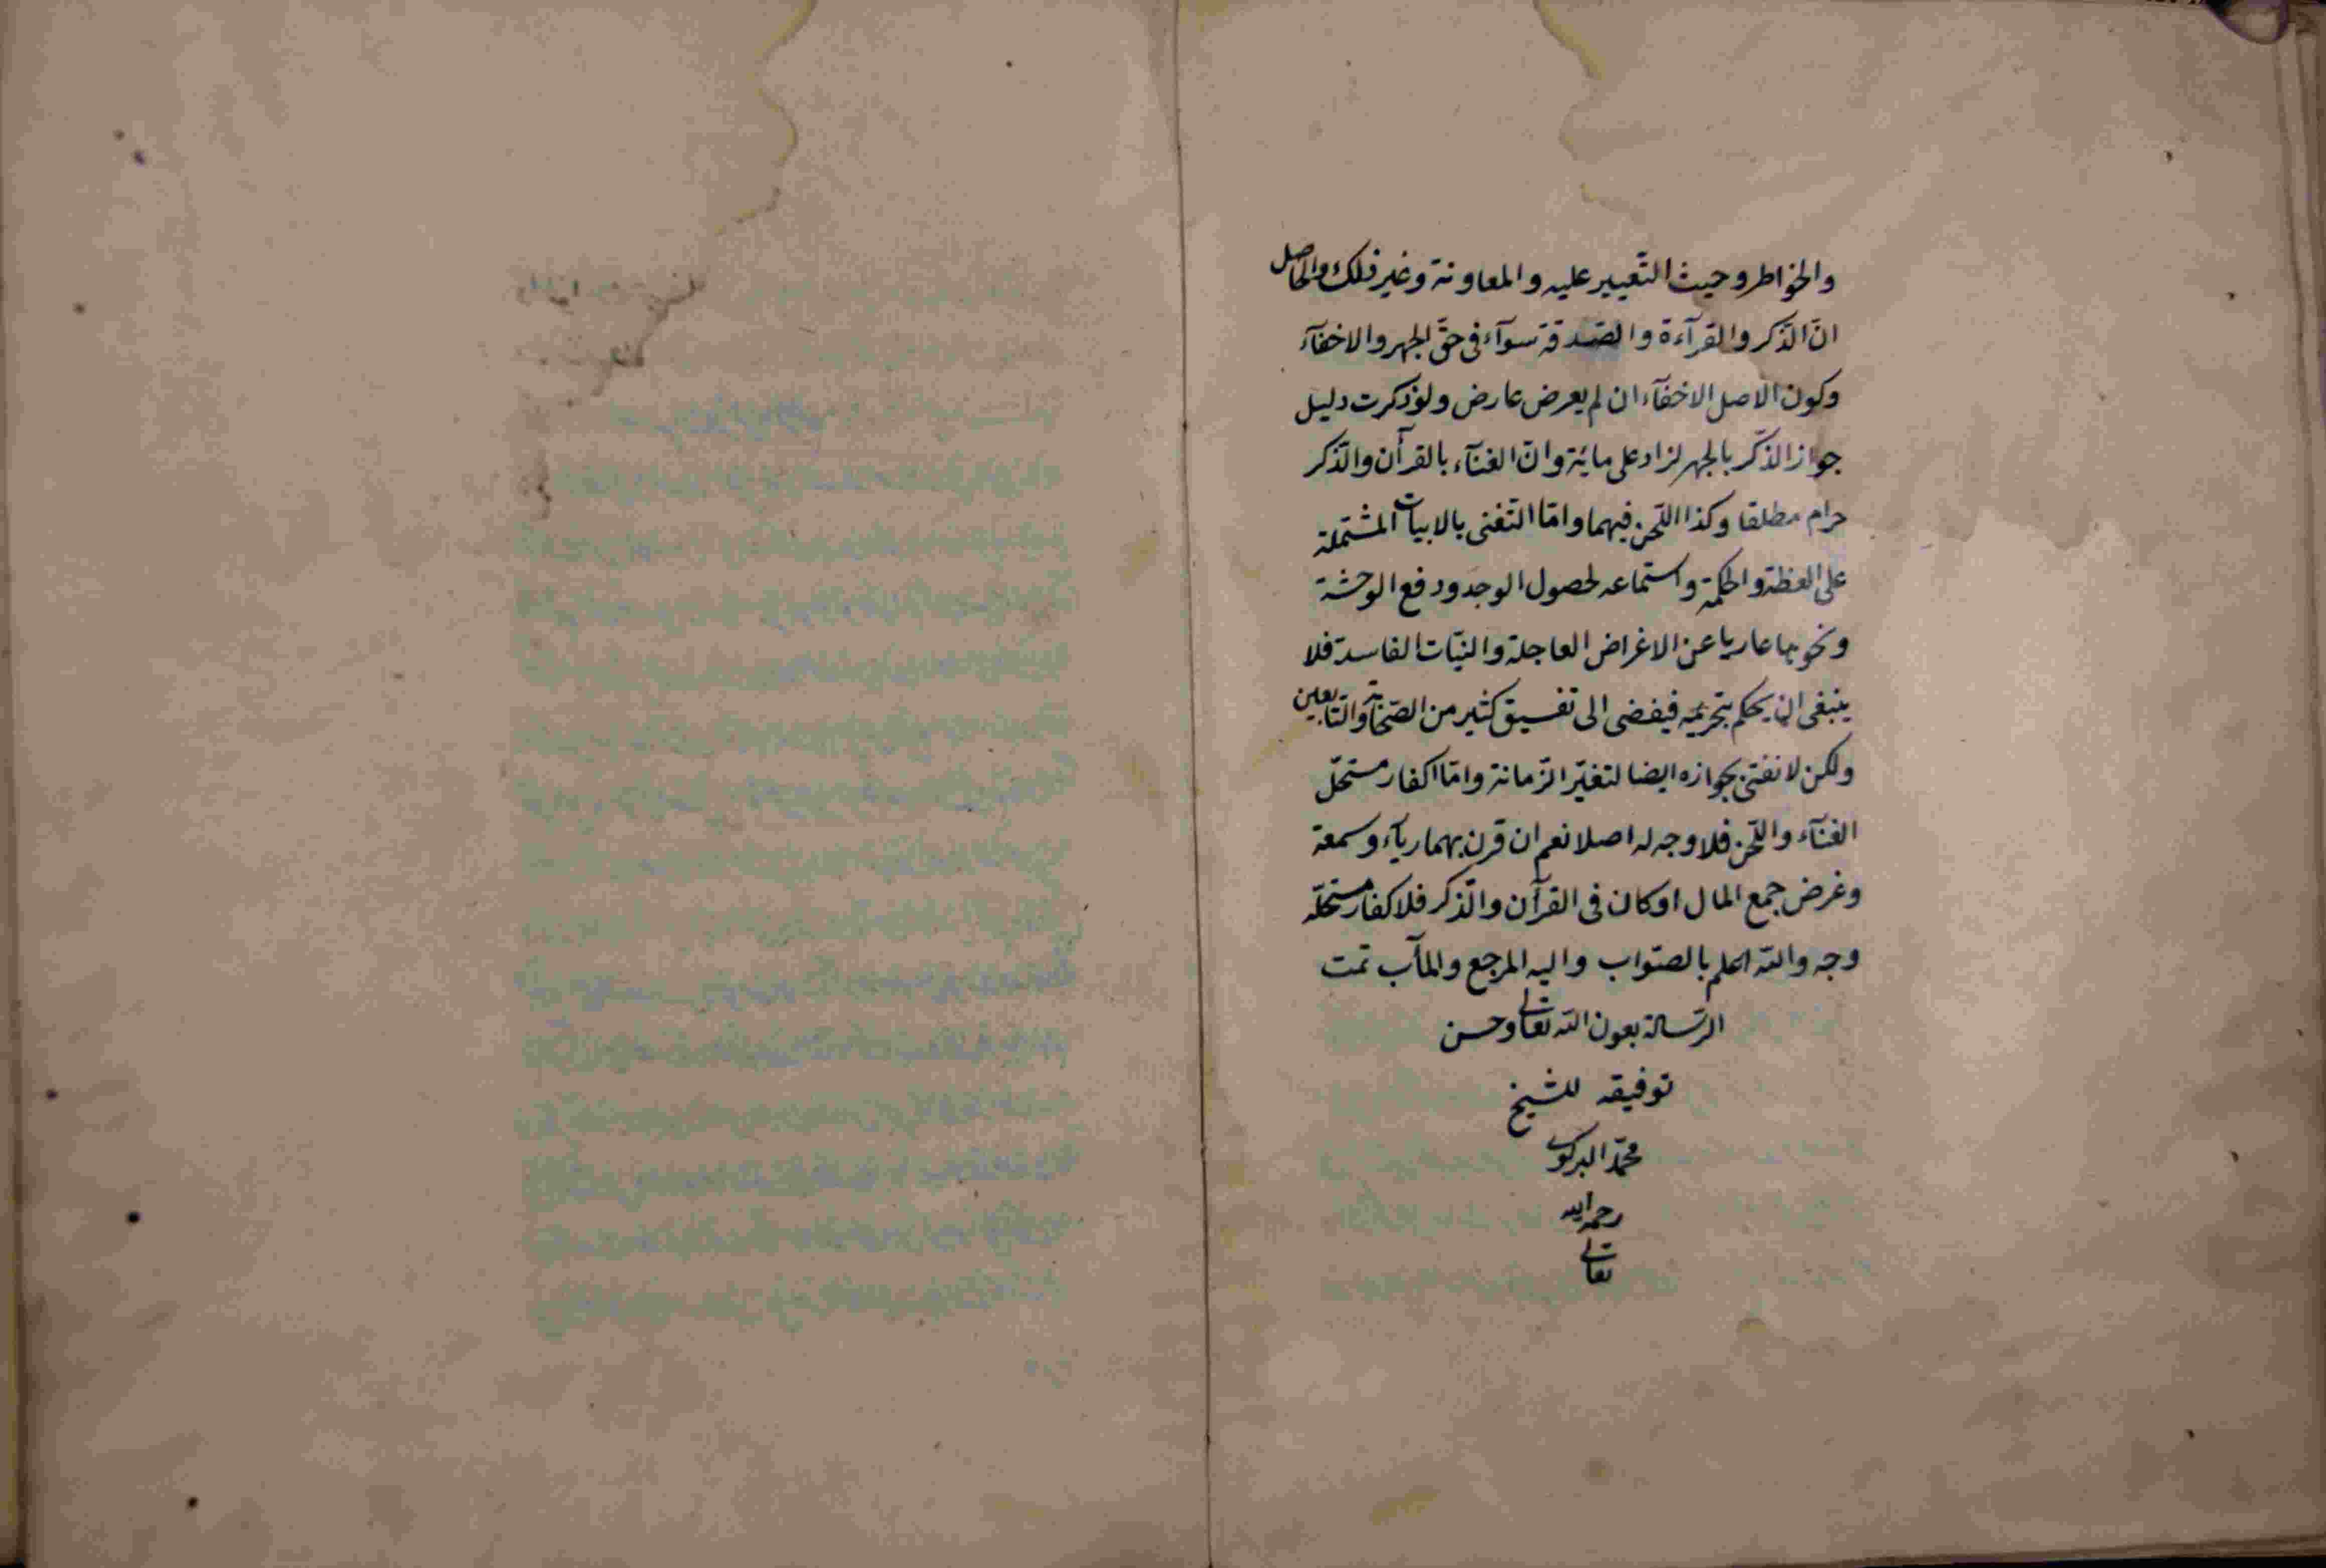 والخواطر وحيث التّعيير عليه والمعاونة وغير ذلك والحاصل
انّ الذّكر والقرآءة والصّدقة سوآء فى حقّ الجهر والاخفآء
وكون الاصل الاخفآء ان لم يعرض عارض ولو ذكرت دليل
جواز الذّكر بالجهر لزاد على مائة وانّ الغنآء بالقرآن والذّكر
حرام مطلقا وكذا اللّحن فيهما وامّا التّغنى بالابيات المشتملة
على العظة والحكمة واستماعه لحصول الوجد ودفع الوحشة
ونحوها عاريا عن الاغراض العاجلة والنيّات الفاسدة فلا
ينبغى ان يحكم بتحريمه فيفضى الى تفسيق كثير من الصّحابة والتّابعين
ولكن لا نفتى بجوازه ايضا لتغيّر الزّمانة وامّا اكفار مستحلّ
الغنآء واللّحن فلا وجه له اصلا نعم ان قرن بهما ريآء وسمعة
وغرض جمع المال او كان فى القرآن والذّكر فلاكفار مستحلّه
وجه واللّه اعلم بالصّواب واليه المرجع والمآب تمت
الرّسالة بعون اللّه تعالى وحسن
توفيقه للشيخ
محمّد البركوى
رحمه الله
تعالى